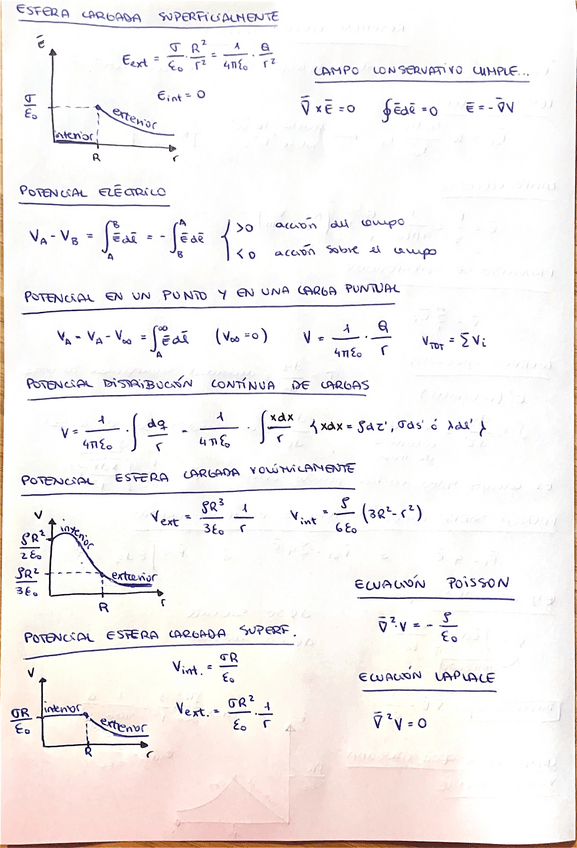 ESFERA CARGADA SUPERFICIALMENTE
Ē
E_ext = σ/ε₀ · R²/r² = 1/4πε₀ · Q/r²
E_int = 0
σ/ε₀
interior
exterior
R
r
CAMPO CONSERVATIVO CUMPLE...
∇̄ x Ē = 0   ∮Ēdl̄ = 0   Ē = -∇̄V
POTENCIAL ELÉCTRICO
V_A - V_B = ∫_A^B Ēdl̄ = -∫_B^A Ēdl̄ { >0 acción del campo
<0 acción sobre el campo
POTENCIAL EN UN PUNTO Y EN UNA CARGA PUNTUAL
V_A = V_A - V_∞ = ∫_A^∞ Ēdl̄   (V_∞ = 0)   V = 1/4πε₀ · Q/r   V_TOT = ΣVi
POTENCIAL DISTRIBUCIÓN CONTÍNUA DE CARGAS
V = 1/4πε₀ · ∫ dq/r = 1/4πε₀ · ∫ xdx/r { xdx = ρdz', σds' ó λds' }
POTENCIAL ESFERA CARGADA VOLÚMICAMENTE
V
V_ext = ρR³/3ε₀ · 1/r   V_int = ρ/6ε₀ (3R² - r²)
ρR²/2ε₀
interior
ρR²/3ε₀
exterior
R
r
ECUACIÓN POISSON
∇̄²·V = - ρ/ε₀
POTENCIAL ESFERA CARGADA SUPERF.
V
V_int. = σR/ε₀
V_ext. = σR²/ε₀ · 1/r
σR/ε₀
interior
exterior
R
r
ECUACIÓN LAPLACE
∇̄²V = 0